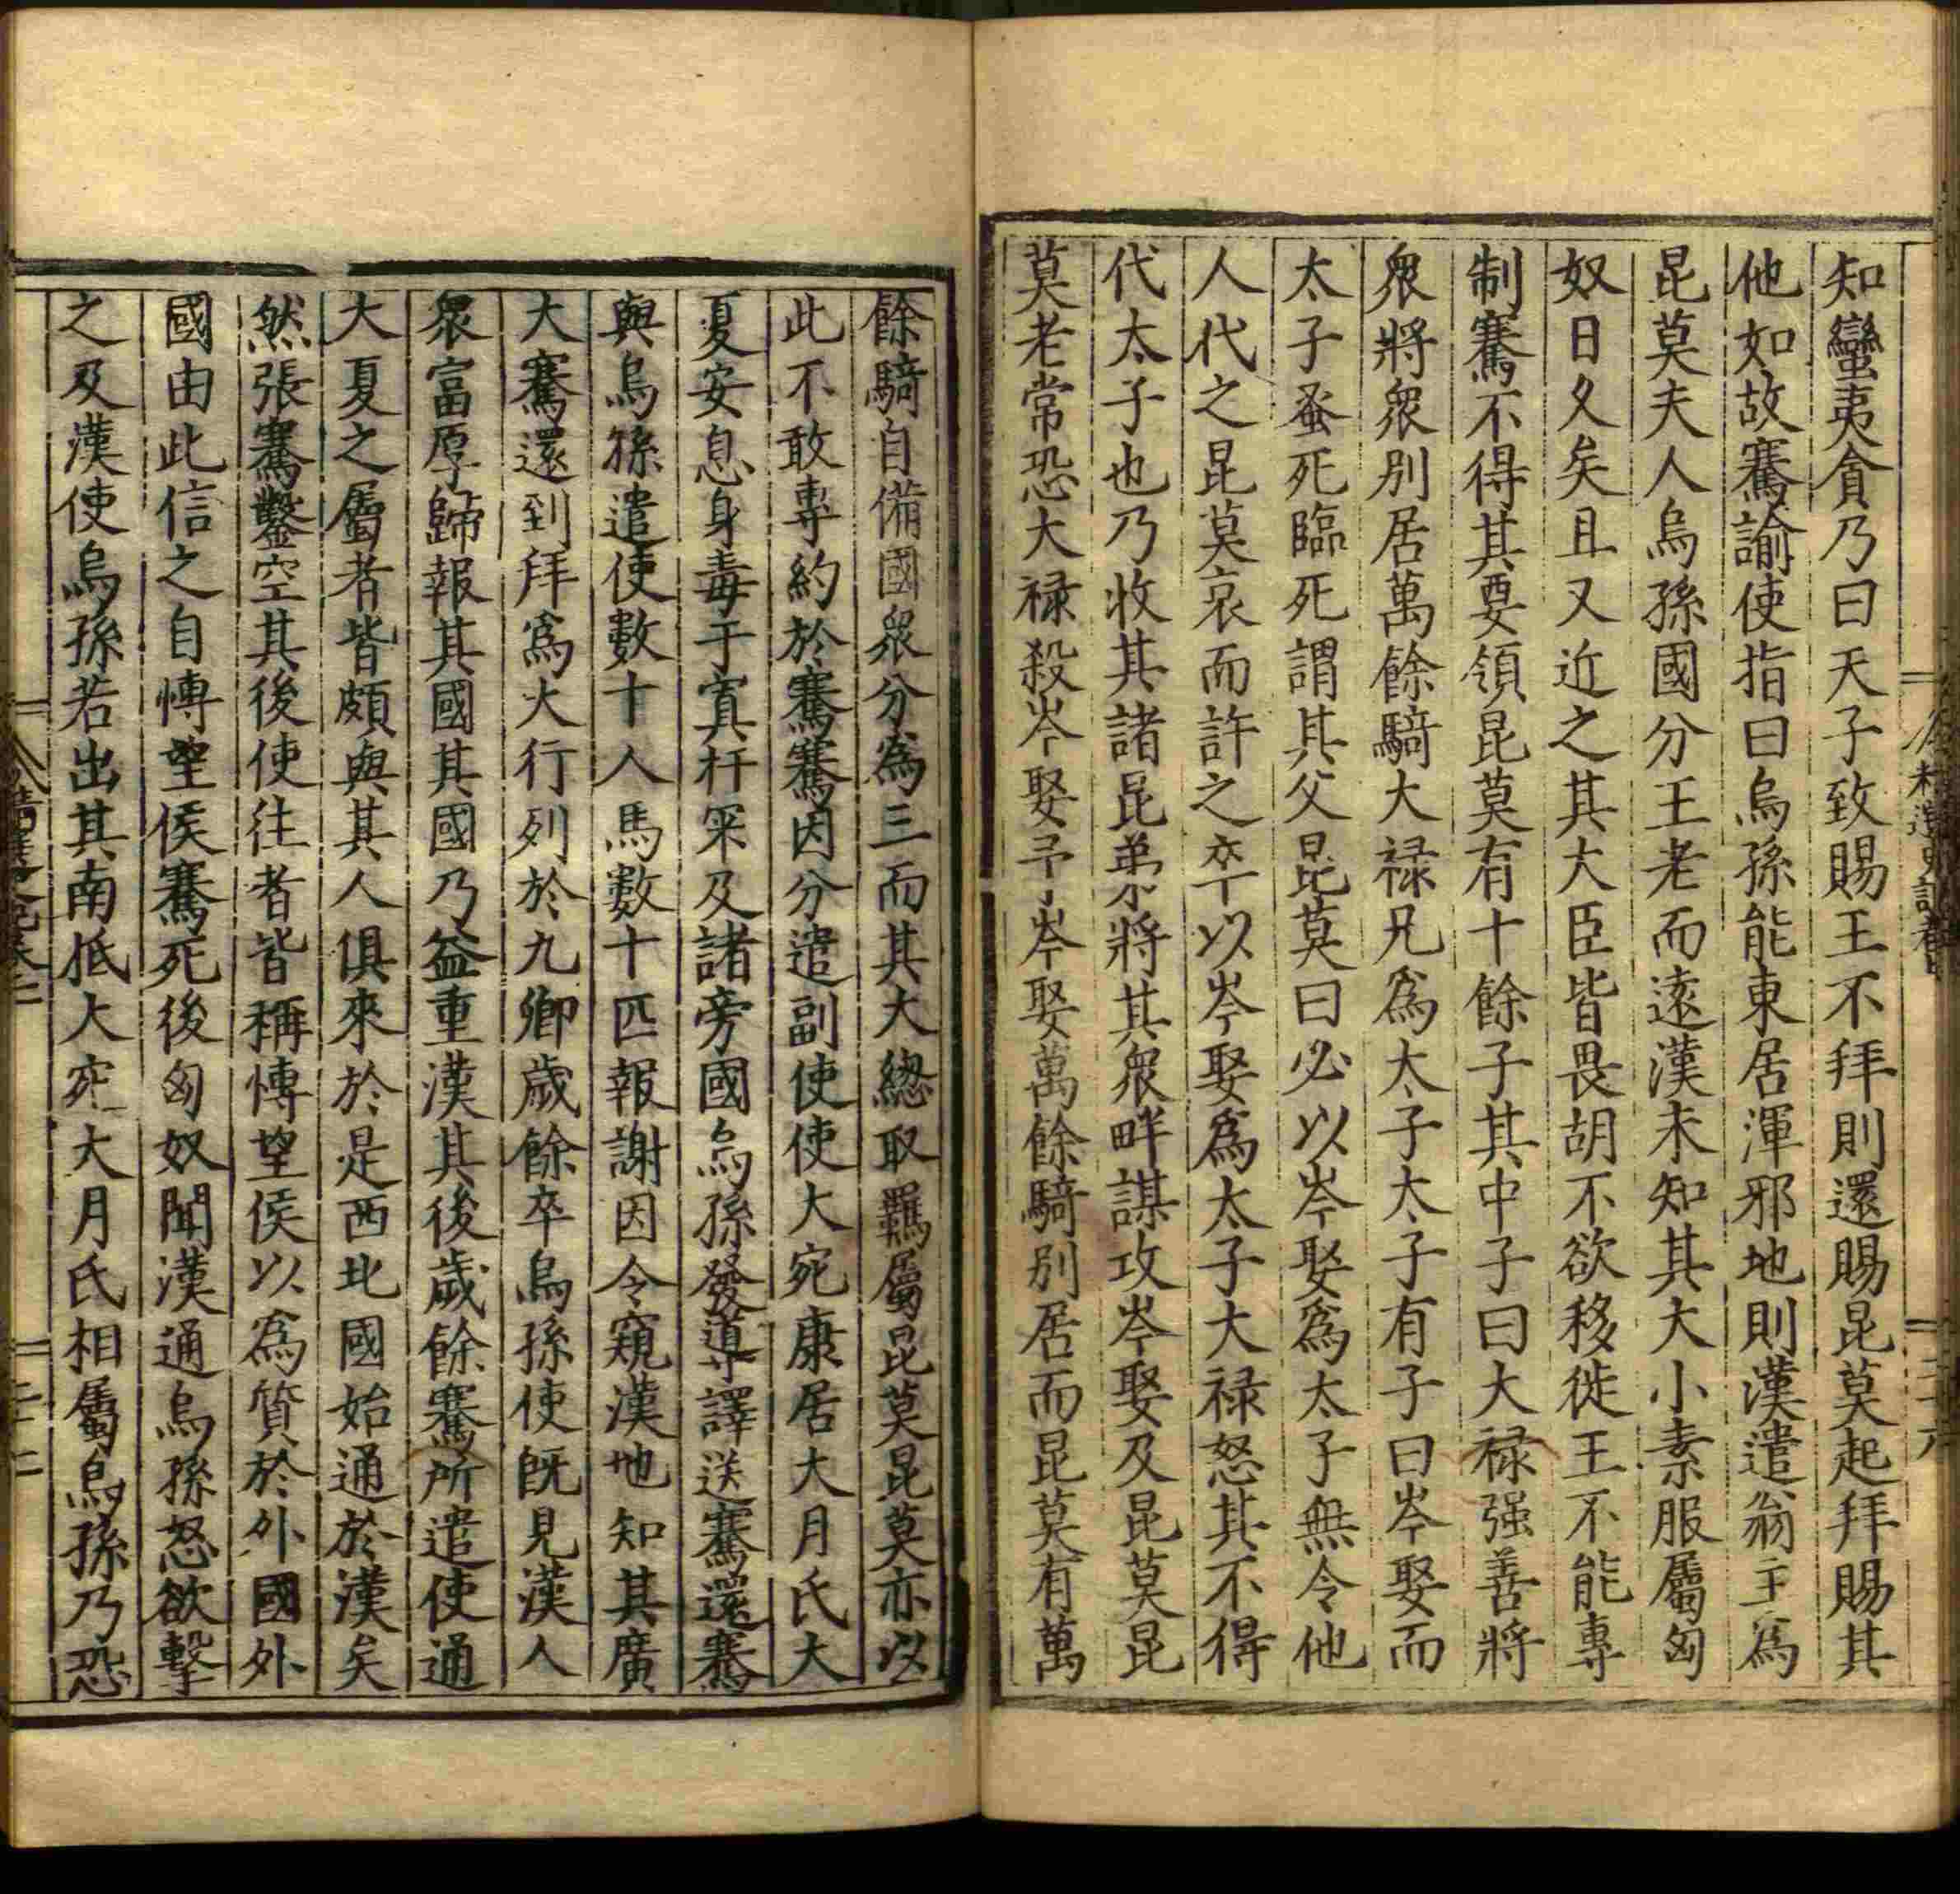 知蠻夷貪乃曰天子致賜王不拜則還賜昆莫起拜賜其
他如故騫諭使指曰烏孫能東居渾邪地則漢遣翁主為
昆莫夫人烏孫國分王老而遠漢未知其大小素服屬匈
奴日久矣且又近之其大臣皆畏胡不欲移徙王不能專
制騫不得其要領昆莫有十餘子其中子曰大祿强善將
衆將衆別居萬餘騎大祿兄爲太子太子有子曰岑娶而
太子蚤死臨死謂其父昆莫曰必以岑娶爲太子無令他
人代之昆莫哀而許之卒以岑娶爲太子大祿怒其不得
代太子也乃收其諸昆弟將其衆畔謀攻岑娶及昆莫昆
莫老常恐大祿殺岑娶予岑娶萬餘騎別居而昆莫有萬
餘騎自備國衆分爲三而其大總取羈屬昆莫昆莫亦以
此不敢專約於騫騫因分遣副使使大宛康居大月氏大
夏安息身毒于寘扜罙及諸旁國烏孫發導譯送騫還騫
與烏孫遣使數十人馬數十匹報謝因令窺漢地知其廣
大騫還到拜爲大行列於九卿歲餘卒烏孫使既見漢人
衆富厚歸報其國其國乃益重漢其後歲餘騫所遣使通
大夏之屬者皆頗與其人俱來於是西北國始通於漢矣
然張騫鑿空其後使往者皆稱愽望侯以爲質於外國外
國由此信之自愽望侯騫死後匈奴聞漢通烏孫怒欲擊
之及漢使烏孫若出其南抵大宛大月氏相屬烏孫乃恐